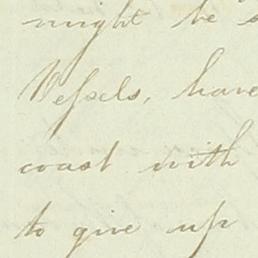 might be
Vessels, have
coast with
to give up